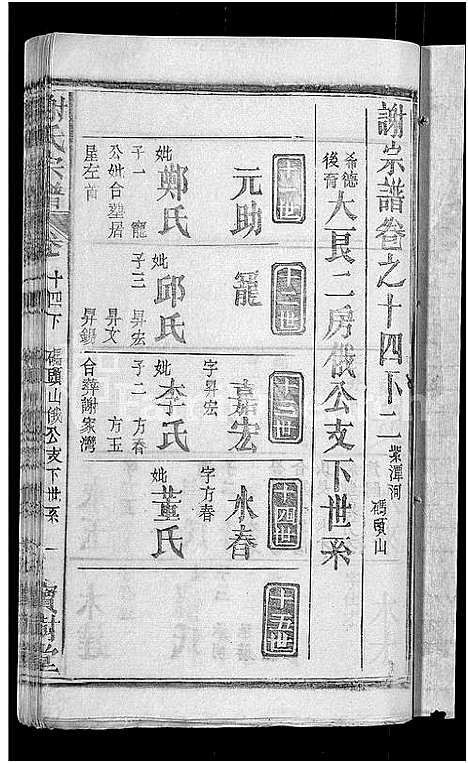 謝宗譜卷之十四下二 紫潭河 碼頭山
希德後育 大良二房俄公支下世系
十一世
元助
妣鄭氏
子一 寵
公妣合塟居
屋左首
十二世
寵
妣邱氏
子三 昇宏
昇文
昇錫
十三世
嘉宏
字昇宏
妣李氏
子二 方春
方玉
合葬謝家灣
十四世
水春
字方春
妣董氏
十五世
謝氏宗譜 卷之十四下 碼頭山俄公支下世系 一 寶樹堂